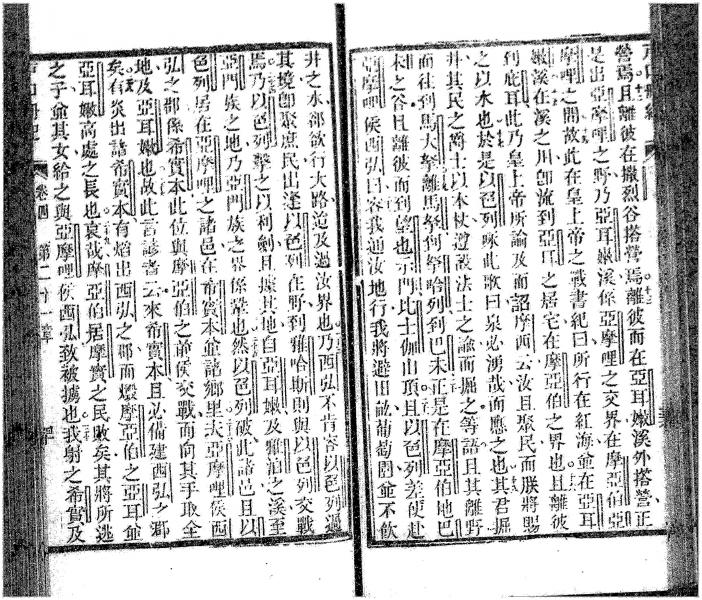 戶口冊紀
營焉且離彼在撒烈谷搭營焉離彼而在亞耳嫩溪外搭營正
是出亞摩哩之野乃亞耳嫩溪係亞摩哩之交界在摩亞伯亞
摩哩之間故此在皇上帝之戰書紀曰所行在紅海並在亞耳
嫩溪在溪之川卽流到亞耳之居宅在摩亞伯之界也且離彼
到庇耳此乃皇上帝所諭及而詔摩西云汝且聚民而朕將賜
之以水也於是以色列咏此歌曰泉必湧哉而應之也其君掘
井其民之爵士以本杖遵設法士之諭而掘之等語且其離野
而往到馬大拏離馬拏何拏哈列到巴未正是在摩亞伯地巴
未之谷且離彼而到壑也示門比士伽出頂且以色列差使赴
亞摩哩侯西弘曰容我通汝地行我將避田畝葡萄園並不飲
井之水卻欲行大路迨及過汝界也乃西弘不肯容以色列過
其境卽聚庶民出逢以色列在野到雅哈斯則與以色列交戰
焉乃以色列擊之以利劍且據其地自亞耳嫩及雅泊之溪至
亞門族之地乃亞門族之界係鞏也然以色列破此諸邑且以
色列居在亞摩哩之諸邑在希實本並諸鄉里夫亞摩哩侯西
弘之郡係希實本此位與摩亞伯之前侯交戰而向其手取全
地及亞耳嫩也故此言諺者云來希實本且必備建西弘之郡
矣有炎出諸希實本有焰出西弘之郡而燬摩亞伯之亞耳並
亞耳嫩高處之長也哀哉摩亞伯居摩實之民敗矣其將所逃
之子並其女給之與亞摩哩侯西弘致被擄也我射之希實及
戶口冊紀 卷四 第二十一章